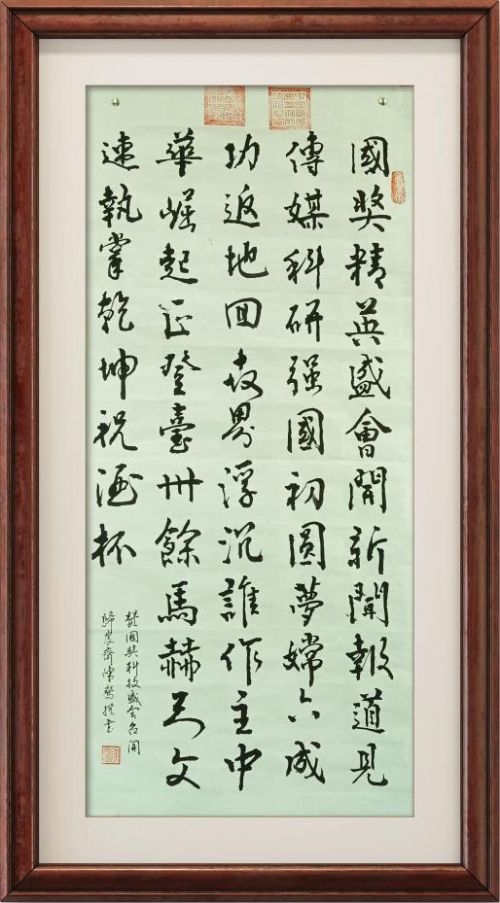 國奖精英盛會開新聞報道見
傳媒科研强國初圓夢嫦六成
功返地回界浮沉誰作主中
華崛起正登臺卅餘馬赫天文
速執掌乾坤祝酒杯
國奖科技盛会召開
歸農齋陳書